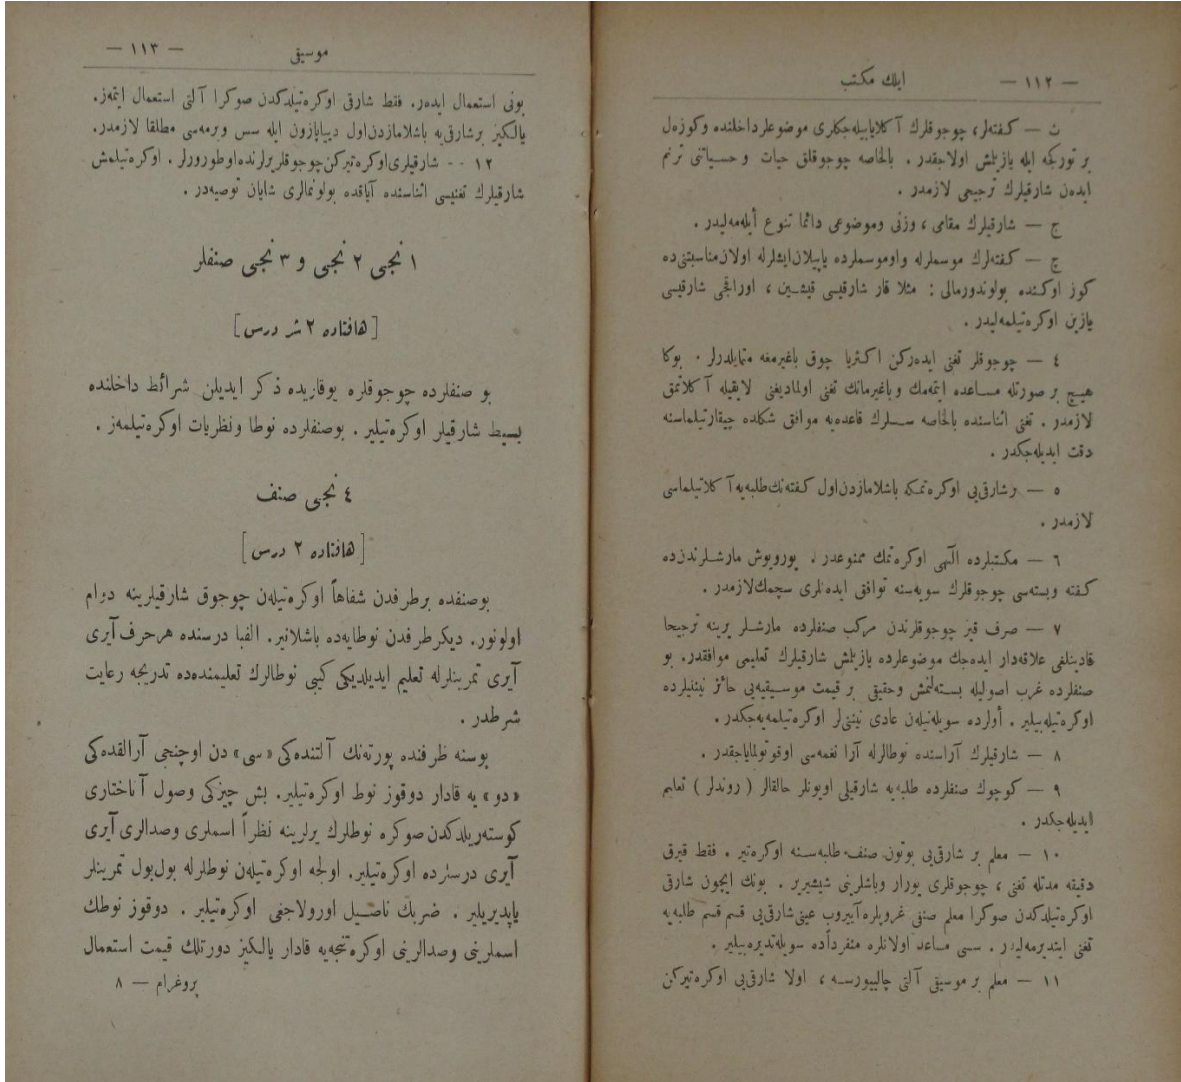 — ١١٢ — ایلك مكتب
ث — كفته‌لر، چوجوقلرك آكلایابیله‌جكلری موضوعلر داخلنده وكوزه‌ل
بر توركجه ایله یازیلمش اولاجقدر . بالخاصه چوجوقلق حیات وحسیاتنی ترنم
ایده‌ن شارقیلرك ترجیحی لازمدر .
ج — شارقیلرك مقامی ، وزنی وموضوعی دائما تنوع أیله‌مه‌لیدر .
چ — كفته‌لرك موسملرله واوموسملرده یاپیلان‌ایشلرله اولان‌مناسبتنی‌ده
كوز اوكنده بولوندورمالی : مثلا قار شارقیسی قیشین ، اوراقجی شارقیسی
یازین اوكره‌تیلمه‌لیدر .
٤ — چوجوقلر تغنی ایده‌ركن اكثریا چوق باغیرمغه متمایلدرلر . بوكا
هیچ بر صورتله مساعده ایتمه‌مك وباغیرمانك تغنی اولمادیغنی لایقیله آكلاتمق
لازمدر . تغنی اثناسنده بالخاصه سسلرك قاعده‌یه موافق شكلده چیقارتیلماسنه
دقت ایدیله‌جكدر .
٥ — رشارقی‌یی اوكره‌تمكه باشلامازدن‌اول كفته‌نك‌طلبه‌یه آكلاتیلماسی
لازمدر .
٦ — مكتبلرده آلهی اوكره‌تمك ممنوعدر . یورویوش مارشلرندن‌ده
كفته وبسته‌سی چوجوقلرك سویه‌سنه توافق ایده‌نلری سچمك‌لازمدر .
٧ — صرف قیز چوجوقلرندن مركب صنفلرده مارشلر یرینه ترجیحا
قادینلغی علاقه‌دار ایده‌جك موضوعلرده یازیلمش شارقیلرك تعلیمی موافقدر. بو
صنفلرده غرب اصولیله بسته‌لنمش وحقیقی بر قیمت موسیقیه‌یی حائز نینیلرده
اوكره‌تیله‌بیلیر . أولرده سویله‌نیله‌ن عادی نینی‌لر اوكره‌تیلمه‌یه‌جكدر .
٨ — شارقیلرك آراسنده نوطالرله آرا نغمه‌سی اوقوتولمایاجقدر .
٩ — كوچوك صنفلرده طلبه‌یه شارقیلی اویونلر حالقالر ( روندلر ) تعلیم
ایدیله‌جكدر .
١٠ — معلم بر شارقی‌یی بوتون صنف طلبه‌سنه اوكره‌تیر . فقط قیرق
دقیقه مدتله تغنی ، چوجوقلری یورار وباشلرینی شیشیریر . بونك ایچون شارقی
اوكره‌تیلدكدن صوكرا معلم صنفی غروپلره آییروب عینی‌شارقی‌یی قسم قسم طلبه‌یه
تغنی ایتدیرمه‌لیدر . سسی مساعد اولانلره منفرداً‌ده سویله‌تدیره‌بیلیر .
١١ — معلم بر موسیقی آلتی چالییورسه ، اولا شارقی‌یی اوكره‌تیركن
موسیقی — ١١٣ —
بونی استعمال ایده‌ر. فقط شارقی اوكره‌تیلدكدن صوكرا آلتی استعمال ایتمه‌ز.
یالكیز برشارقی‌یه باشلامازدن‌اول دیاپازون ایله سس ویرمه‌سی مطلقا لازمدر.
١٢ -- شارقیلری‌اوكره‌تیركن‌چوجوقلریرلرنده‌اوطورورلر . اوكره‌تیلمش
شارقیلرك تغنیسی اثناسنده آیاقده بولونمالری شایان توصیه‌در .
١ نجی ٢ نجی و ٣ نجی صنفلر
[هافتاده ٢ شر درس]
بو صنفلرده چوجوقلره یوقاریده ذكر ایدیلن شرائط داخلنده
بسیط شارقیلر اوكره‌تیلیر. بوصنفلرده نوطا ونظریات اوكره‌تیلمه‌ز .
٤ نجی صنف
[هافتاده ٢ درس]
بوصنفده برطرفدن شفاهاً اوكره‌تیله‌ن چوجوق شارقیلرینه دوام
اولونور. دیكرطرفدن نوطایه‌ده باشلانیر. الفبا درسنده هرحرف آیری
آیری تمرینلرله تعلیم ایدیلدیكی كبی نوطالرك تعلیمنده‌ده تدریجه رعایت
شرطدر .
بوسنه ظرفنده پورته‌نك آلتنده‌كی «سی» دن اوچنجی آرالقده‌كی
«دو» یه قادار دوقوز نوط اوكره‌تیلیر. بش چیزكی وصول آناختاری
كوسته‌ریلدكدن صوكره نوطه‌لرك یرلرینه نظراً اسملری وصدالری آیری
آیری درسلرده اوكره‌تیلیر. اولجه اوكره‌تیله‌ن نوطلرله بول‌بول تمرینلر
یاپدیریلیر . ضربك ناصیل اورولاجغی اوكره‌تیلیر . دوقوز نوطك
اسملرینی وصدالرینی اوكره‌تنجه‌یه قادار یالكیز دورتلك قیمت استعمال
پروغرام — ٨